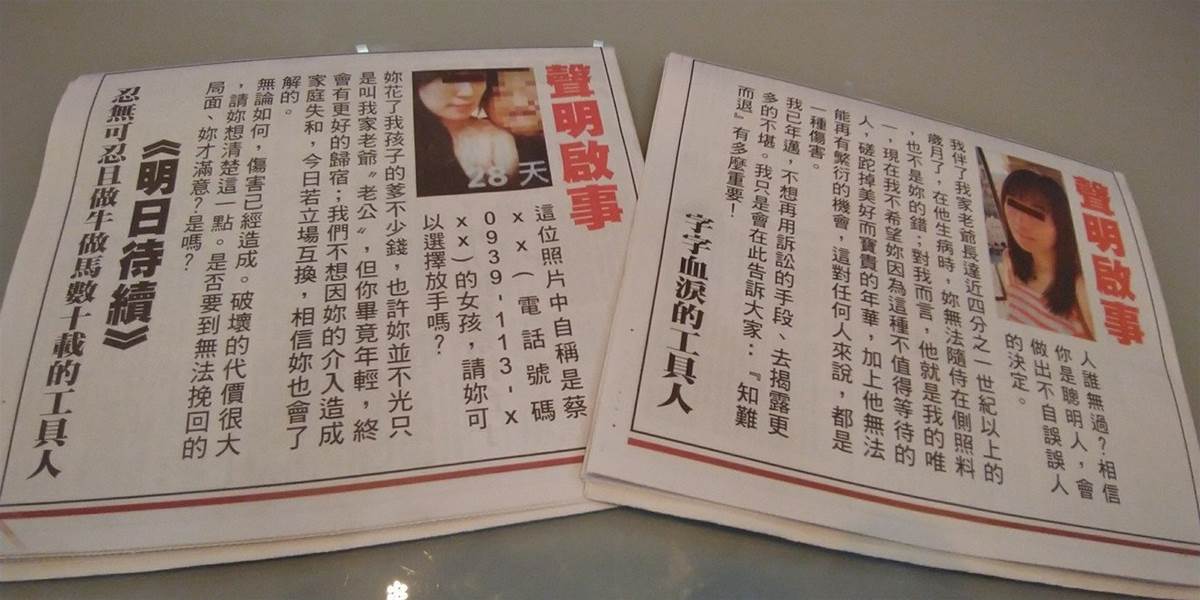 聲明啟事
28 天
這位照片中自稱是蔡
xx(電話號碼
0939-113-x
xx)的女孩,請妳可
以選擇放手嗎?
妳花了我孩子的爹不少錢,也許妳並不光只
是叫我家老爺〝老公〞,但你畢竟年輕,終
會有更好的歸宿;我們不想因妳的介入造成
家庭失和,今日若立場互換,相信妳也會了
解的。
無論如何,傷害已經造成。破壞的代價很大
,請妳想清楚這一點。是否要到無法挽回的
局面、妳才滿意?是嗎?
《明日待續》
忍無可忍且做牛做馬數十載的工具人
聲明啟事
人誰無過?相信
你是聰明人,會
做出不自誤誤人
的決定。
我伴了我家老爺長達近四分之一世紀以上的
歲月了,在他生病時,妳無法隨侍在側照料
,也不是妳的錯;對我而言,他就是我的唯
一,現在我不希望妳因為這種不值得等待的
人,磋跎掉美好而寶貴的年華,加上他無法
能再有繁衍的機會,這對任何人來說,都是
一種傷害。
我已年邁,不想再用訴訟的手段、去揭露更
多的不堪。我只是會在此告訴大家:『知難
而退』有多麼重要!
字字血淚的工具人